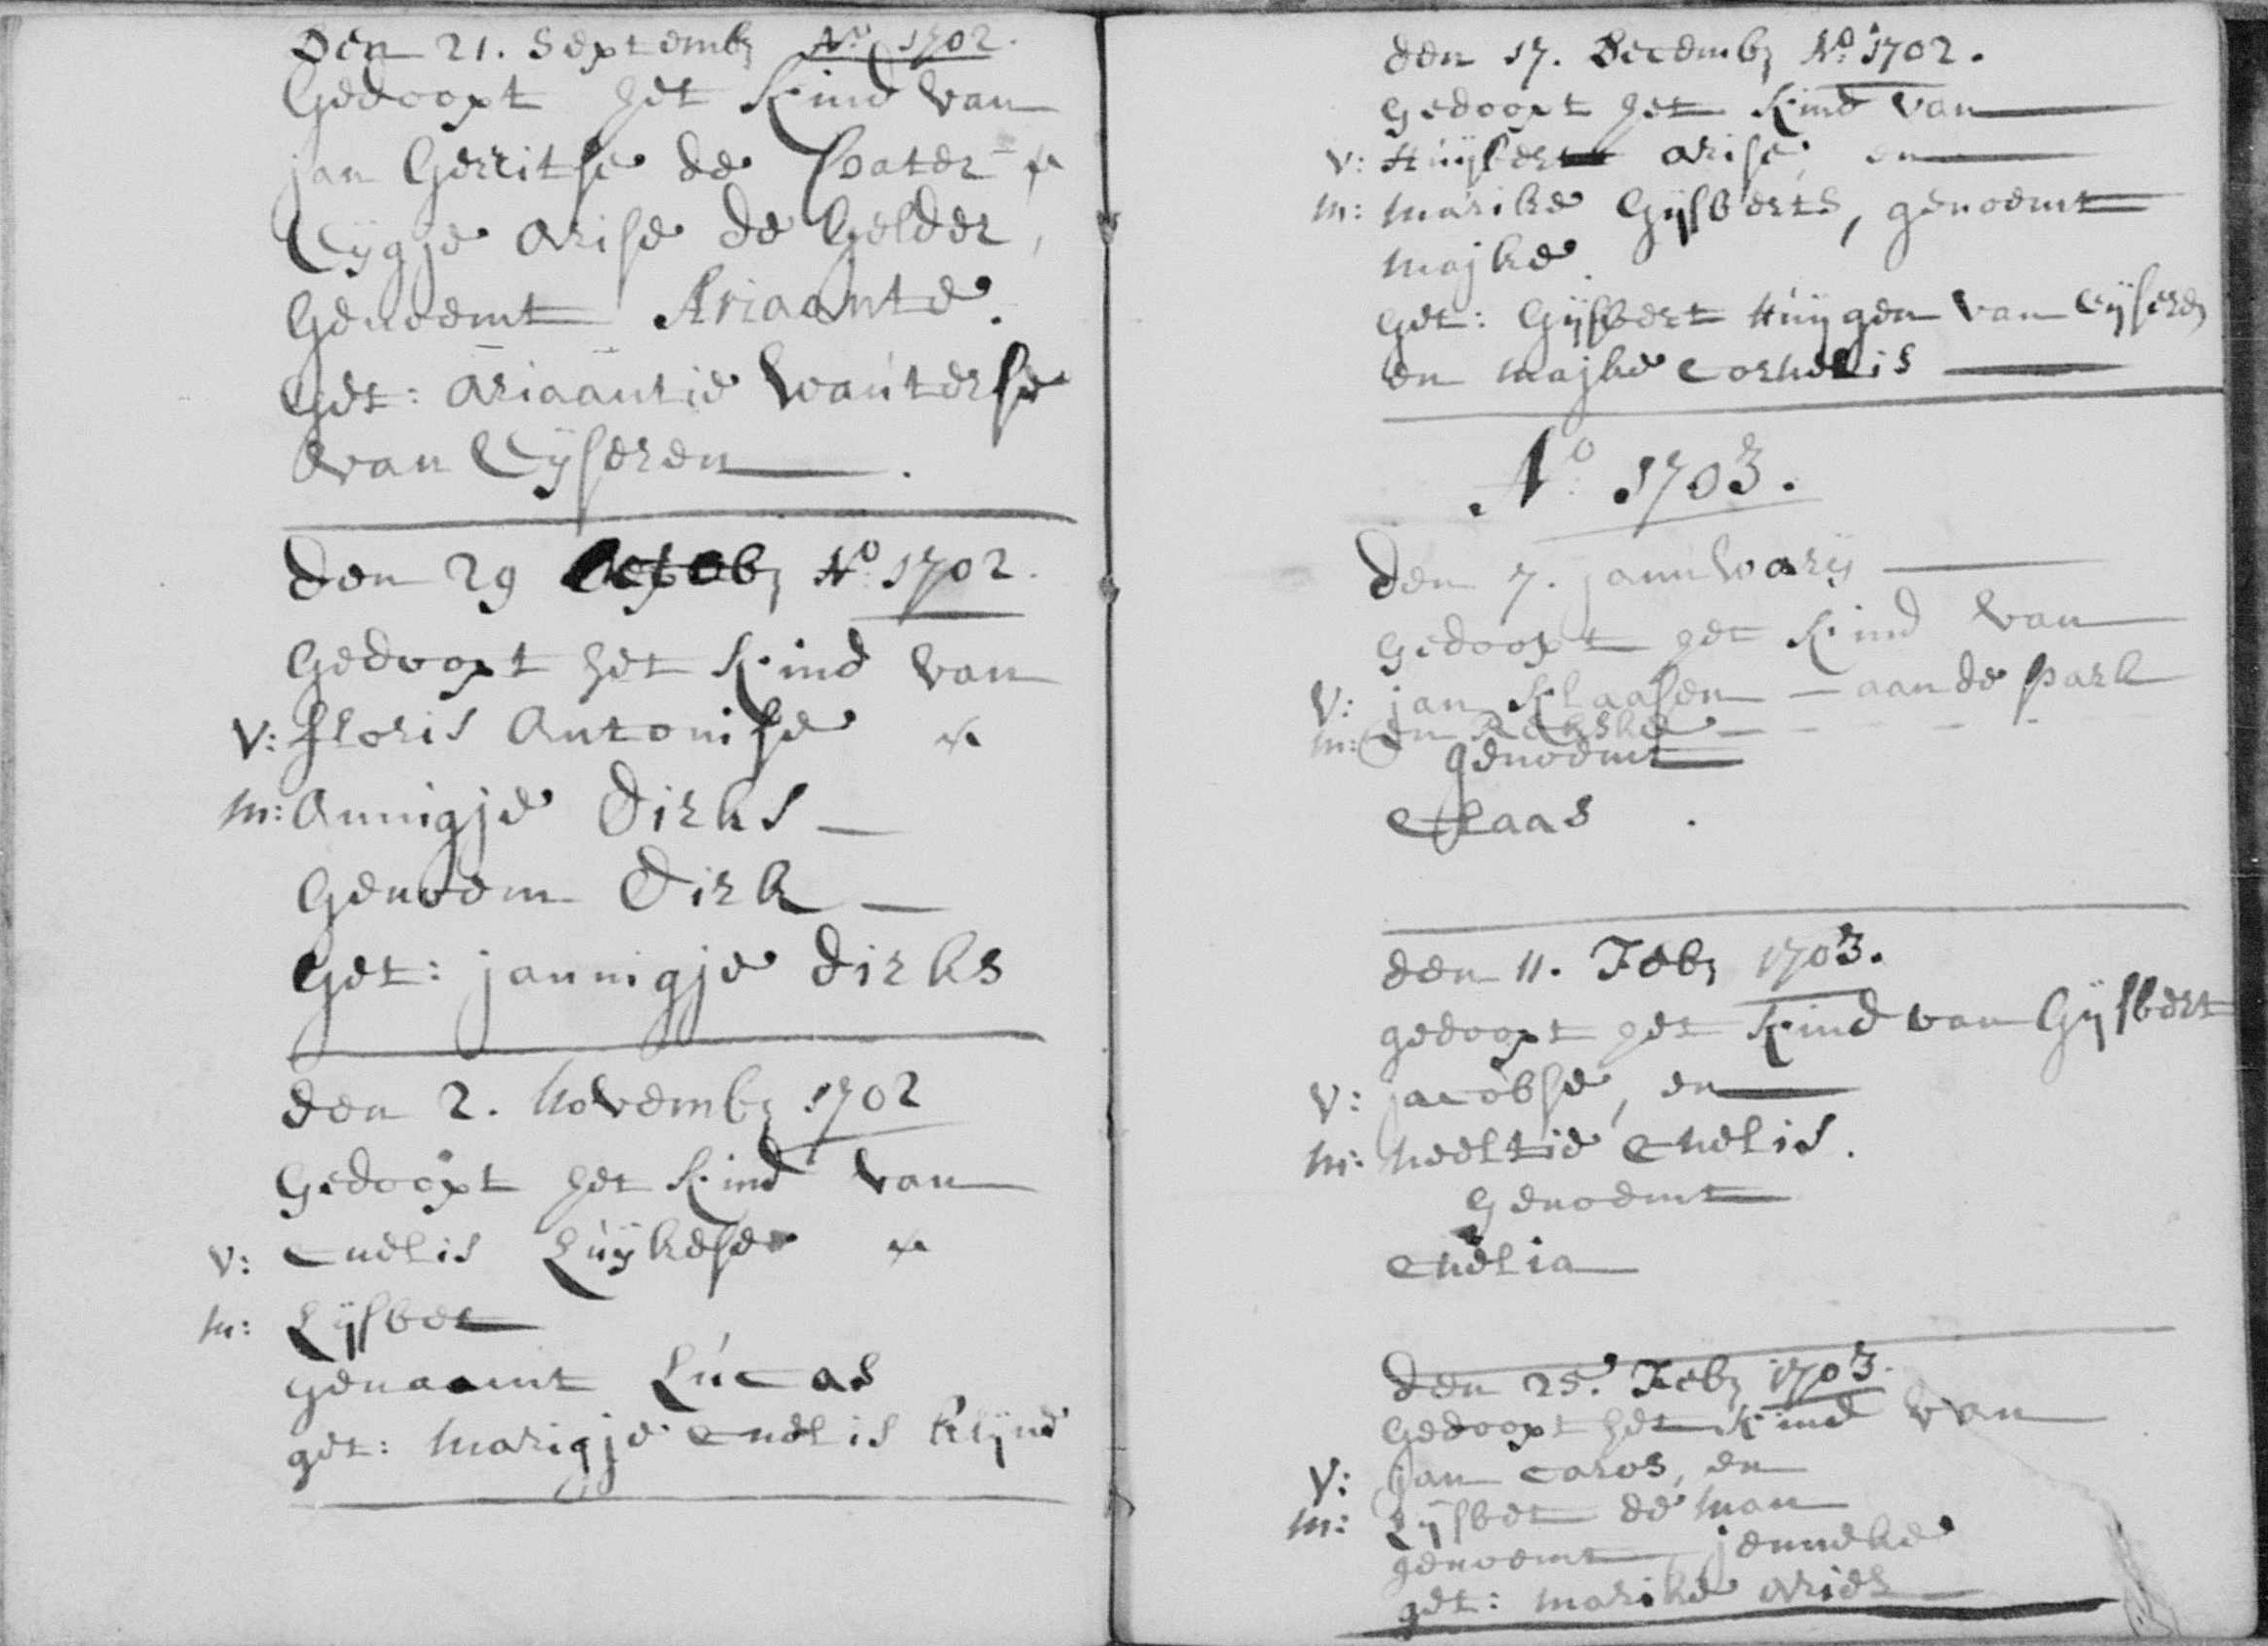 Den 21. Septemb: Ao 1702.
Gedoopt het Kind van
jan Gerritse de Water x
Eijgje Arise de Gelder,
Genoemt Ariaante.
Get: Ariaantie Woúterse
van Eijseren.
Den 29 Octob: Ao 1702.
Gedoopt het Kind van
V: floris Antonise x
M: Annigje Dirks
Genoem Dirk
Get: jannigje dirks
den 2. Novemb: 1702
Gedoopt het Kind van
V: Cnelis Lúijkese x
M: Lijsbet
genaamt Lúcas
get: Marigje Cnelis Klijne
den 17. Decemb: Ao 1702.
Gedoopt het Kind van
V: Húijbert Arise, en
M: Marike Gijsberts, genoemt
Majke.
Get: Gijsbert Húijgen van Eijseren
en Majke Cornelis
Ao 1703.
Den 7. januwarij
Gedoopt het Kind van
V: jan Klaasen — aan de park
M: en
genoemt
Claas.
den 11. Feb: 1703.
gedoopt het Kind van Gijsbert
V: jacobse, en
M: Neeltie Cnelis.
Genoemt
Cnelia
Den 25. Feb: 1703.
Gedoopt het Kind van
V: jan Caros, en
M: Lijsbet de Man
genoemt jenneke
get: Marike Aries